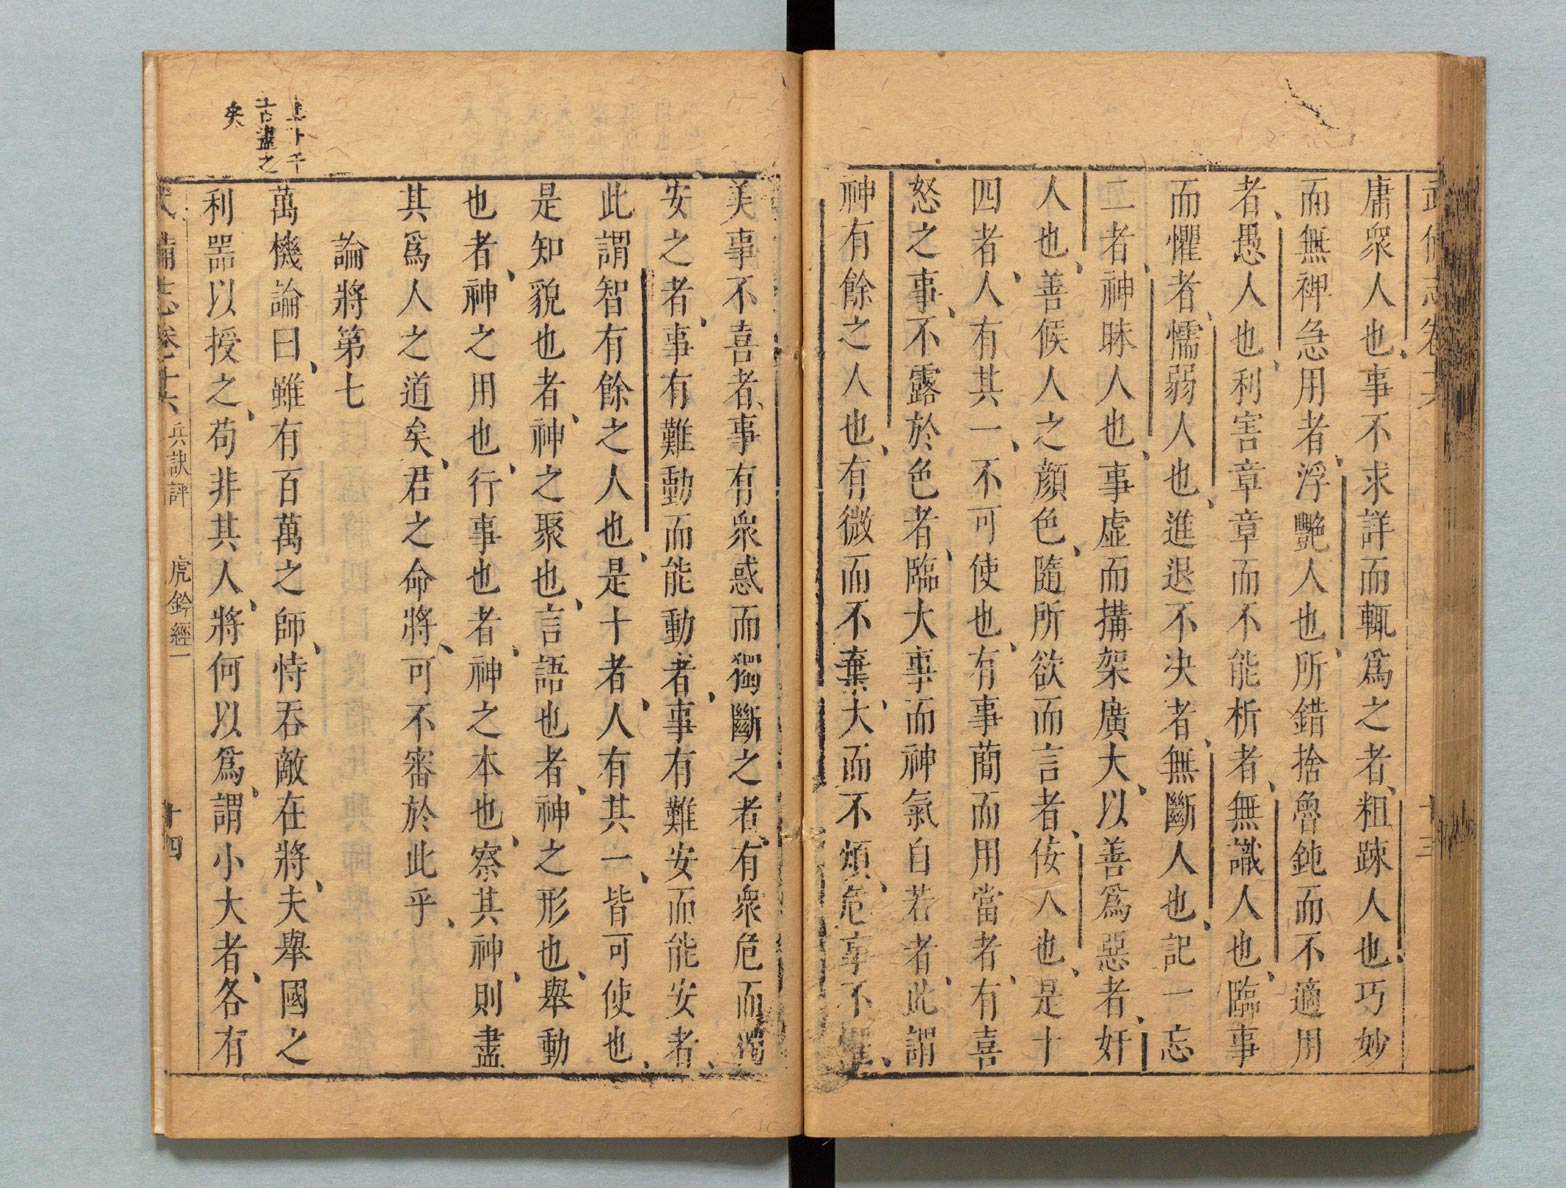 武備志卷十六
十三
庸衆人也事不求詳而輒爲之者粗踈人也巧妙
而無裨急用者浮艷人也所錯捨魯鈍而不適用
者愚人也利害章章而不能析者無識人也臨事
而懼者懦弱人也進退不决者無斷人也記一忘
二者神昧人也事虛而搆架廣大以善爲惡者奸
人也善候人之顏色隨所欲而言者佞人也是十
四者人有其一不可使也有事蕳而用當者有喜
怒之事不露於色者臨大事而神氣自若者此謂
神有餘之人也有微而不棄大而不煩危事不懼
美事不喜者事有衆惑而獨斷之者有衆危而獨
安之者事有難動而能動者事有難安而能安者
此謂智有餘之人也是十者人有其一皆可使也
是知貌也者神之聚也言語也者神之形也舉動
也者神之用也行事也者神之本也察其神則盡
其爲人之道矣君之命將可不審於此乎
論將第七
萬機論曰雖有百萬之師恃吞敵在將夫舉國之
利噐以授之苟非其人將何以爲謂小大者各有
千
古盡之
矣
武備志卷十六 兵訣評 虎鈐經一
十四